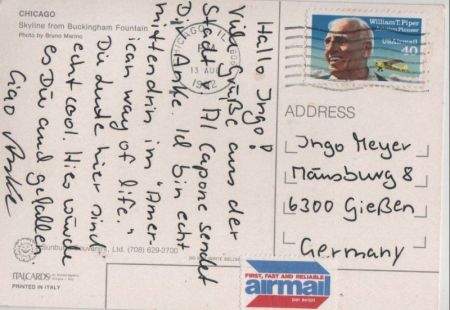 CHICAGO
Skyline from Buckingham Fountain
Photo by Bruno Marino
Hallo Ingo!
Viele Grüße aus der
Stadt v. Al Capone sendet
Dir Anke. Ich bin echt
mittendrin im "Amer-
ican way of life."
Die Leute hier sind
echt cool. Hier würde
es Dir auch gefallen
Ciao Anke
CHICAGO, IL 606
13 AUG
1992
William T. Piper
Aviation Pioneer
USAirmail
40
ADDRESS
Ingo Meyer
Mäusburg 8
6300 Gießen
Germany
Ltd. (708) 629-2700
ITALCARDS
PRINTED IN ITALY
FIRST, FAST AND RELIABLE
airmail
par avion